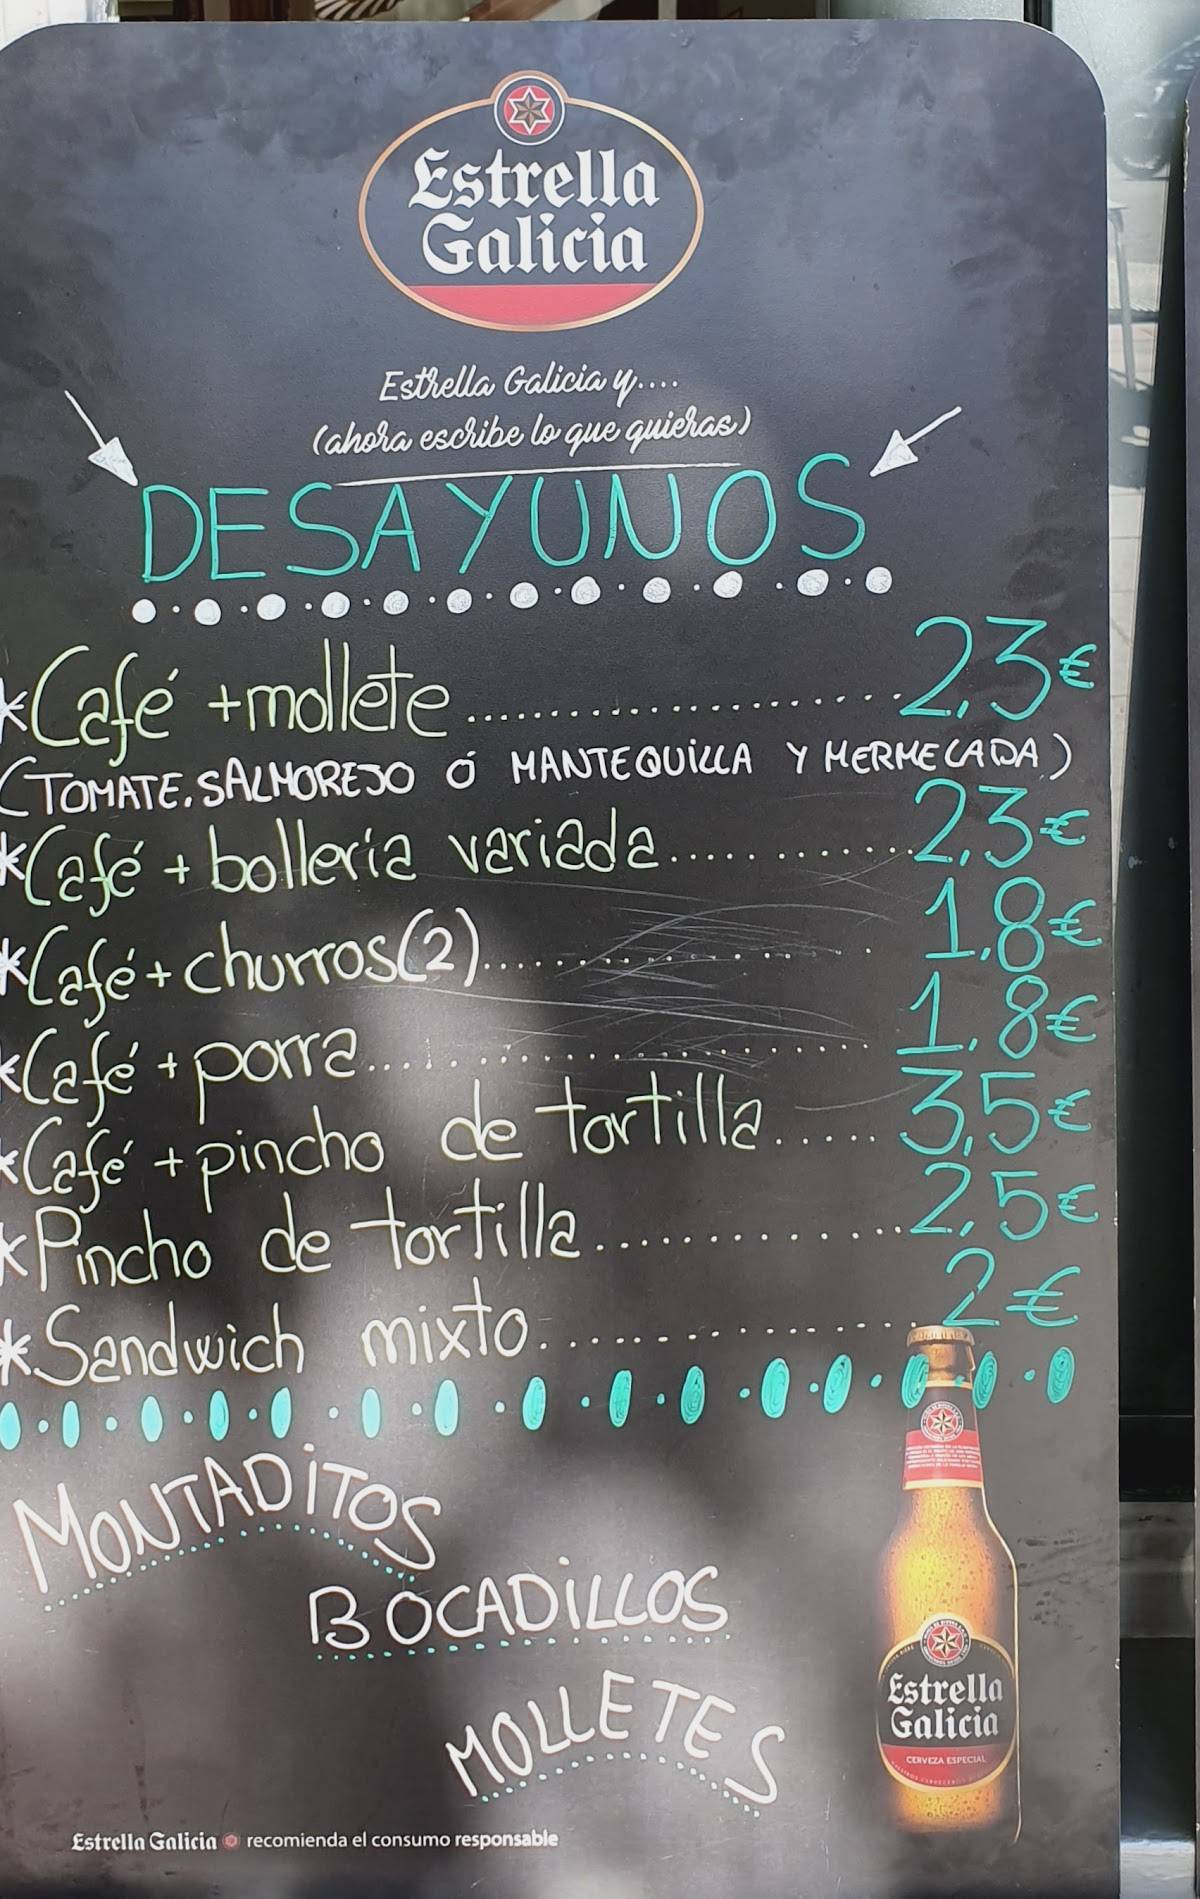 Estrella
Galicia
Estrella Galicia y....
(ahora escribe lo que quieras)
DESAYUNOS
*Café + mollete.................... 2,3€
(TOMATE, SALMOREJO Ó MANTEQUILLA Y MERMELADA)
*Café + bollería variada........... 2,3€
*Café + churros(2)................. 1,8€
*Café + porra...................... 1,8€
*Café + pincho de tortilla...... 3,5€
*Pincho de tortilla............... 2,5€
*Sandwich mixto.................. 2€
MONTADITOS
BOCADILLOS
MOLLETES
Estrella
Galicia
CERVEZA ESPECIAL
Estrella Galicia recomienda el consumo responsable